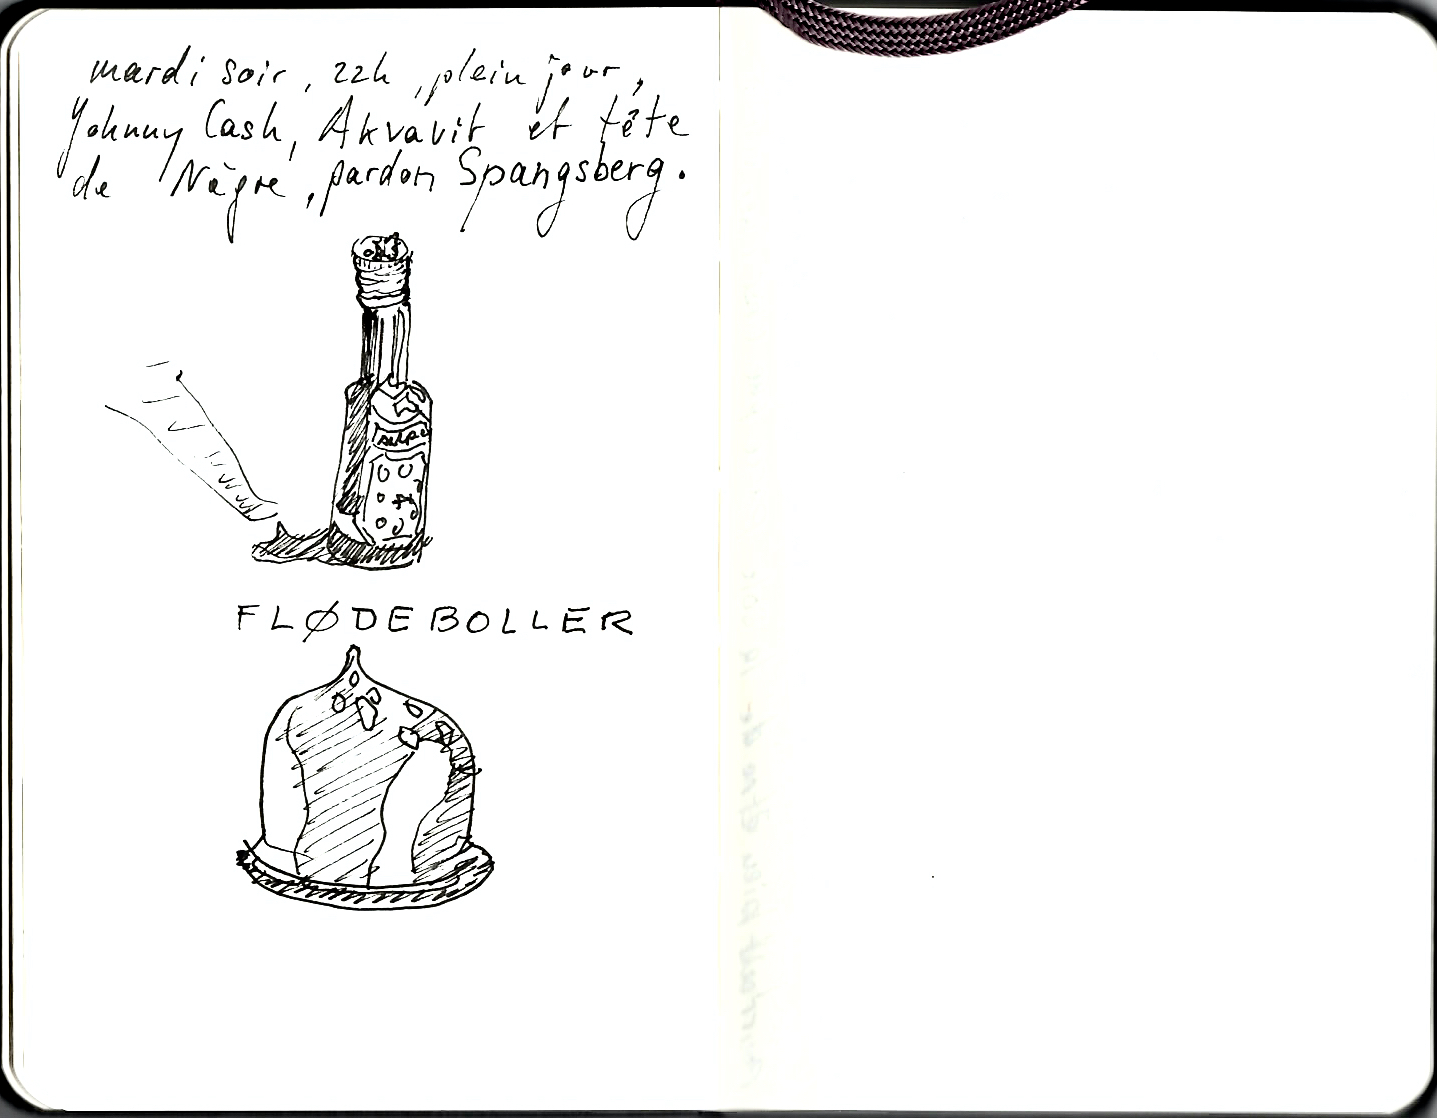 mardi soir, 22h, plein jour,
Johnny Cash, Akvavit et tête
de Nègre, pardon Spangsberg.
FLØDEBOLLER